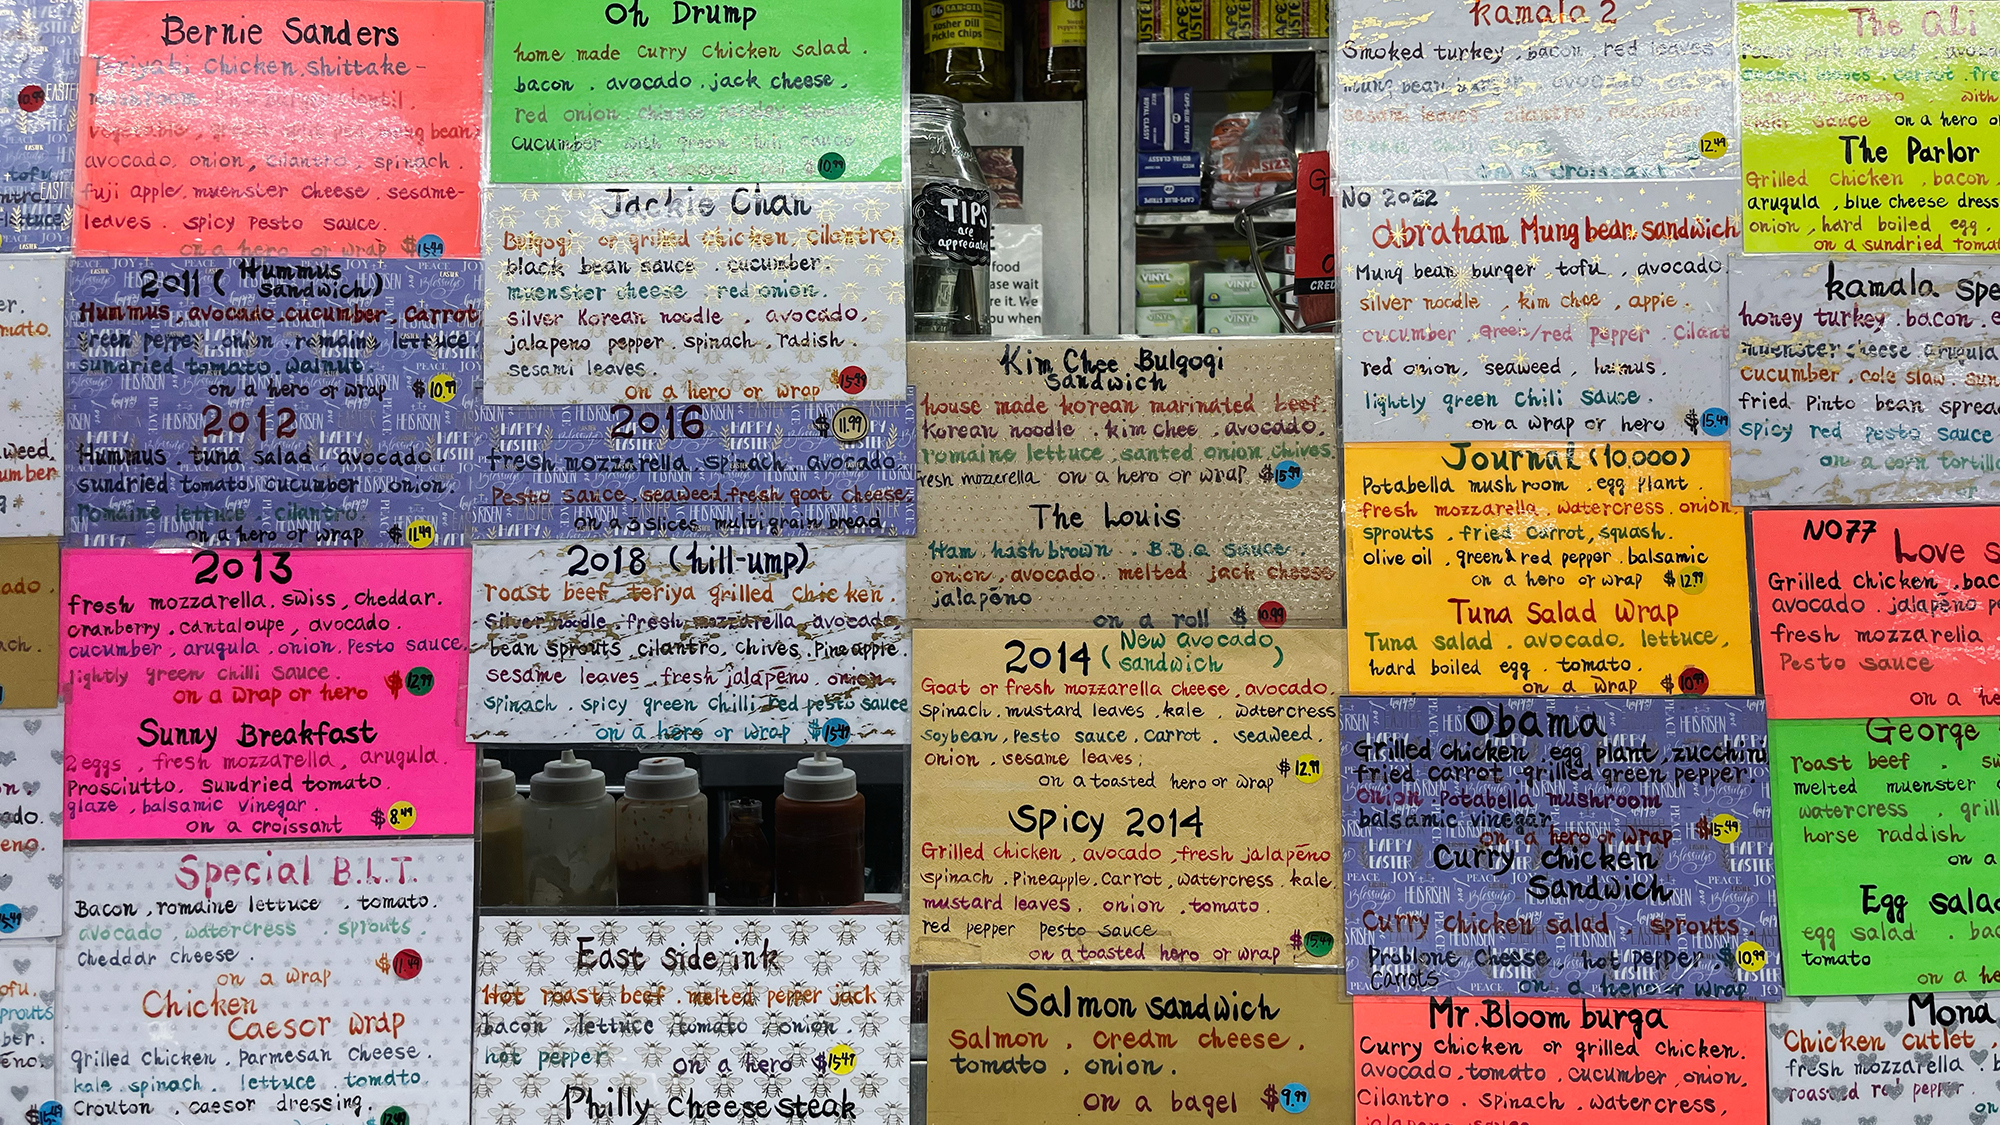 Bernie Sanders
Teriyaki Chicken, shittake-
vegetable
avocado, onion, cilantro, spinach.
fuji apple, muenster cheese, sesame-
leaves. spicy pesto sauce.
on a hero or wrap $15.49
2011 (Hummus
sandwich)
Hummus, avocado, cucumber, carrot
green pepper, onion, remain lettuce,
sundried tomato, walnut.
on a hero or wrap $10.99
2012
Hummus, tuna salad, avocado
sundried tomato cucumber onion.
romaine lettuce, cilantro.
on a hero or wrap $11.49
2013
fresh mozzarella, swiss, cheddar.
cranberry, cantaloupe, avocado.
cucumber, arugula, onion, Pesto sauce,
lightly green chilli sauce.
on a wrap or hero $12.99
Sunny Breakfast
2 eggs, fresh mozzarella, arugula.
Prosciutto, sundried tomato
glaze, balsamic vinegar.
on a croissant $8.49
Special B.L.T.
Bacon, romaine lettuce, tomato.
avocado watercress sprouts
cheddar cheese.
on a wrap $11.49
Chicken
Caesor wrap
grilled chicken, parmesan cheese.
kale, spinach, lettuce tomato
Crouton, caesor dressing.
12.49
Oh Drump
home made curry chicken salad.
bacon, avocado, jack cheese,
red onion
cucumber with green chili sauce
10.99
Jackie Chan
Bulgogi or grilled chicken, cilantro
black bean sauce, cucumber.
muenster cheese, red onion.
silver Korean noodle, avocado.
jalapeno pepper, spinach, radish.
sesami leaves.
on a hero or wrap $15.99
2016 $11.99
fresh mozzarella, spinach, avocado
Pesto sauce, seaweed, fresh goat cheese.
on a 3 slices multigrain bread
2018 (hill-ump)
roast beef, teriya grilled chicken.
silver noodle, fresh mozzarella, avocado
bean sprouts, cilantro, chives, Pineapple.
sesame leaves, fresh jalapeno, onion
spinach, spicy green chilli red pesto sauce
on a hero or wrap $15.49
East side ink
Hot roast beef, melted pepper jack
bacon, lettuce, tomato, onion.
hot pepper
on a hero $15.49
Philly cheese steak
BG SAN-DEL
Kosher Dill
Pickle Chips
TIPS
are
appreciated
food
ase wait
re it. We
ou when
ROYAL CLASSY
CAPS-BLUE STRIPE
VINYL
VINYL
CRED
Kim Chee Bulgogi
Sandwich
house made korean marinated beef.
Korean noodle, kim chee, avocado.
romaine lettuce, santed onion chives.
fresh mozzerella on a hero or wrap $15.99
The Louis
Ham, hashbrown, B.B.Q sauce.
onion, avocado, melted jack cheese
jalapeno
on a roll $10.99
2014 (New avocado
sandwich)
Goat or fresh mozzarella cheese, avocado.
spinach, mustard leaves, kale, watercress
soybean, pesto sauce, carrot, seaweed.
onion, sesame leaves;
on a toasted hero or wrap $12.99
Spicy 2014
Grilled chicken, avocado, fresh jalapeno
spinach, Pineapple, Carrot, watercress, kale,
mustard leaves, onion, tomato.
red pepper pesto sauce
on a toasted hero or wrap $15.49
Salmon sandwich
salmon, cream cheese,
tomato, onion.
on a bagel $9.99
kamala 2
Smoked turkey, bacon, red leaves
mung bean burger, avocado
sesami leaves cilantro
12.49
on a croissant
NO 2022
Obraham Mung bean sandwich
Mung bean burger tofu, avocado.
silver noodle, kim chee, apple.
cucumber green/red pepper cilant
red onion, seaweed, humus.
lightly green chili sauce.
on a wrap or hero $15.49
Journal (10,000)
Potabella mushroom, egg plant.
fresh mozzarella, watercress, onion
sprouts, fried carrot, squash.
olive oil, green & red pepper, balsamic
on a hero or wrap $12.99
Tuna Salad Wrap
Tuna salad, avocado, lettuce,
hard boiled egg, tomato.
on a wrap $10.99
Obama
Grilled chicken, egg plant, zucchini
fried carrot, grilled green pepper.
onion, Potabella mushroom
balsamic vinegar
on a hero or wrap $15.49
Curry chicken
Sandwich
Curry chicken salad, sprouts.
Problone cheese, hot pepper. $10.99
carrots on a hero or wrap
Mr. Bloom burga
Curry chicken or grilled chicken.
avocado, tomato, cucumber, onion,
Cilantro, spinach, watercress,
The Ali
on a hero or
The Parlor
Grilled chicken, bacon,
arugula, blue cheese dress
onion, hard boiled egg,
on a sundried tomat
kamala spe
honey turkey, bacon, e
muenster cheese arugula
cucumber, cole slaw, sun
fried Pinto bean sprea
spicy red pesto sauce
on a corn tortill
NO 77
Love S
Grilled chicken, bac
avocado, jalapeno pe
fresh mozzarella
Pesto sauce
on a he
George
roast beef, sw
melted muenster
watercress, grill
horse raddish
on a
Egg salad
egg salad, bac
tomato
on a he
Mona
Chicken cutlet,
fresh mozzarella, b
roasted red pepper
on